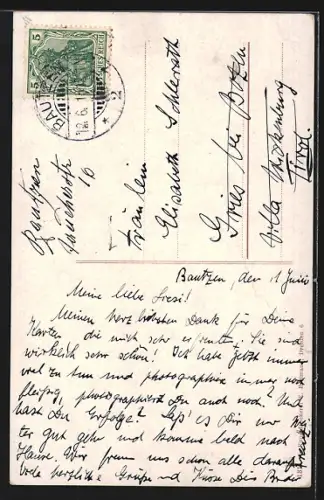 5
5
DEUTSCHES REICH
BAUTZEN
Bautzen
16
Fräulein
Elisabeth Schlerath
Gries bei Botzen
Villa
Tirol.
Bautzen, den 1 Juni
Meine liebe Liesi!
Meinen herzlichsten Dank für Deine
Karten die mich sehr erfreuten. Sie sind
wirklich sehr schön! Ich habe jetzt immer
viel zu tun und photographiere immer noch
fleißig, photographierst Du auch noch? Und
hast Du Erfolge? Laß' es Dir nur wei-
ter gut gehn und komme bald nach
Hause. Wir freun uns schon alle darauf.
Viele herzliche Grüße und Küsse Dein Bruder